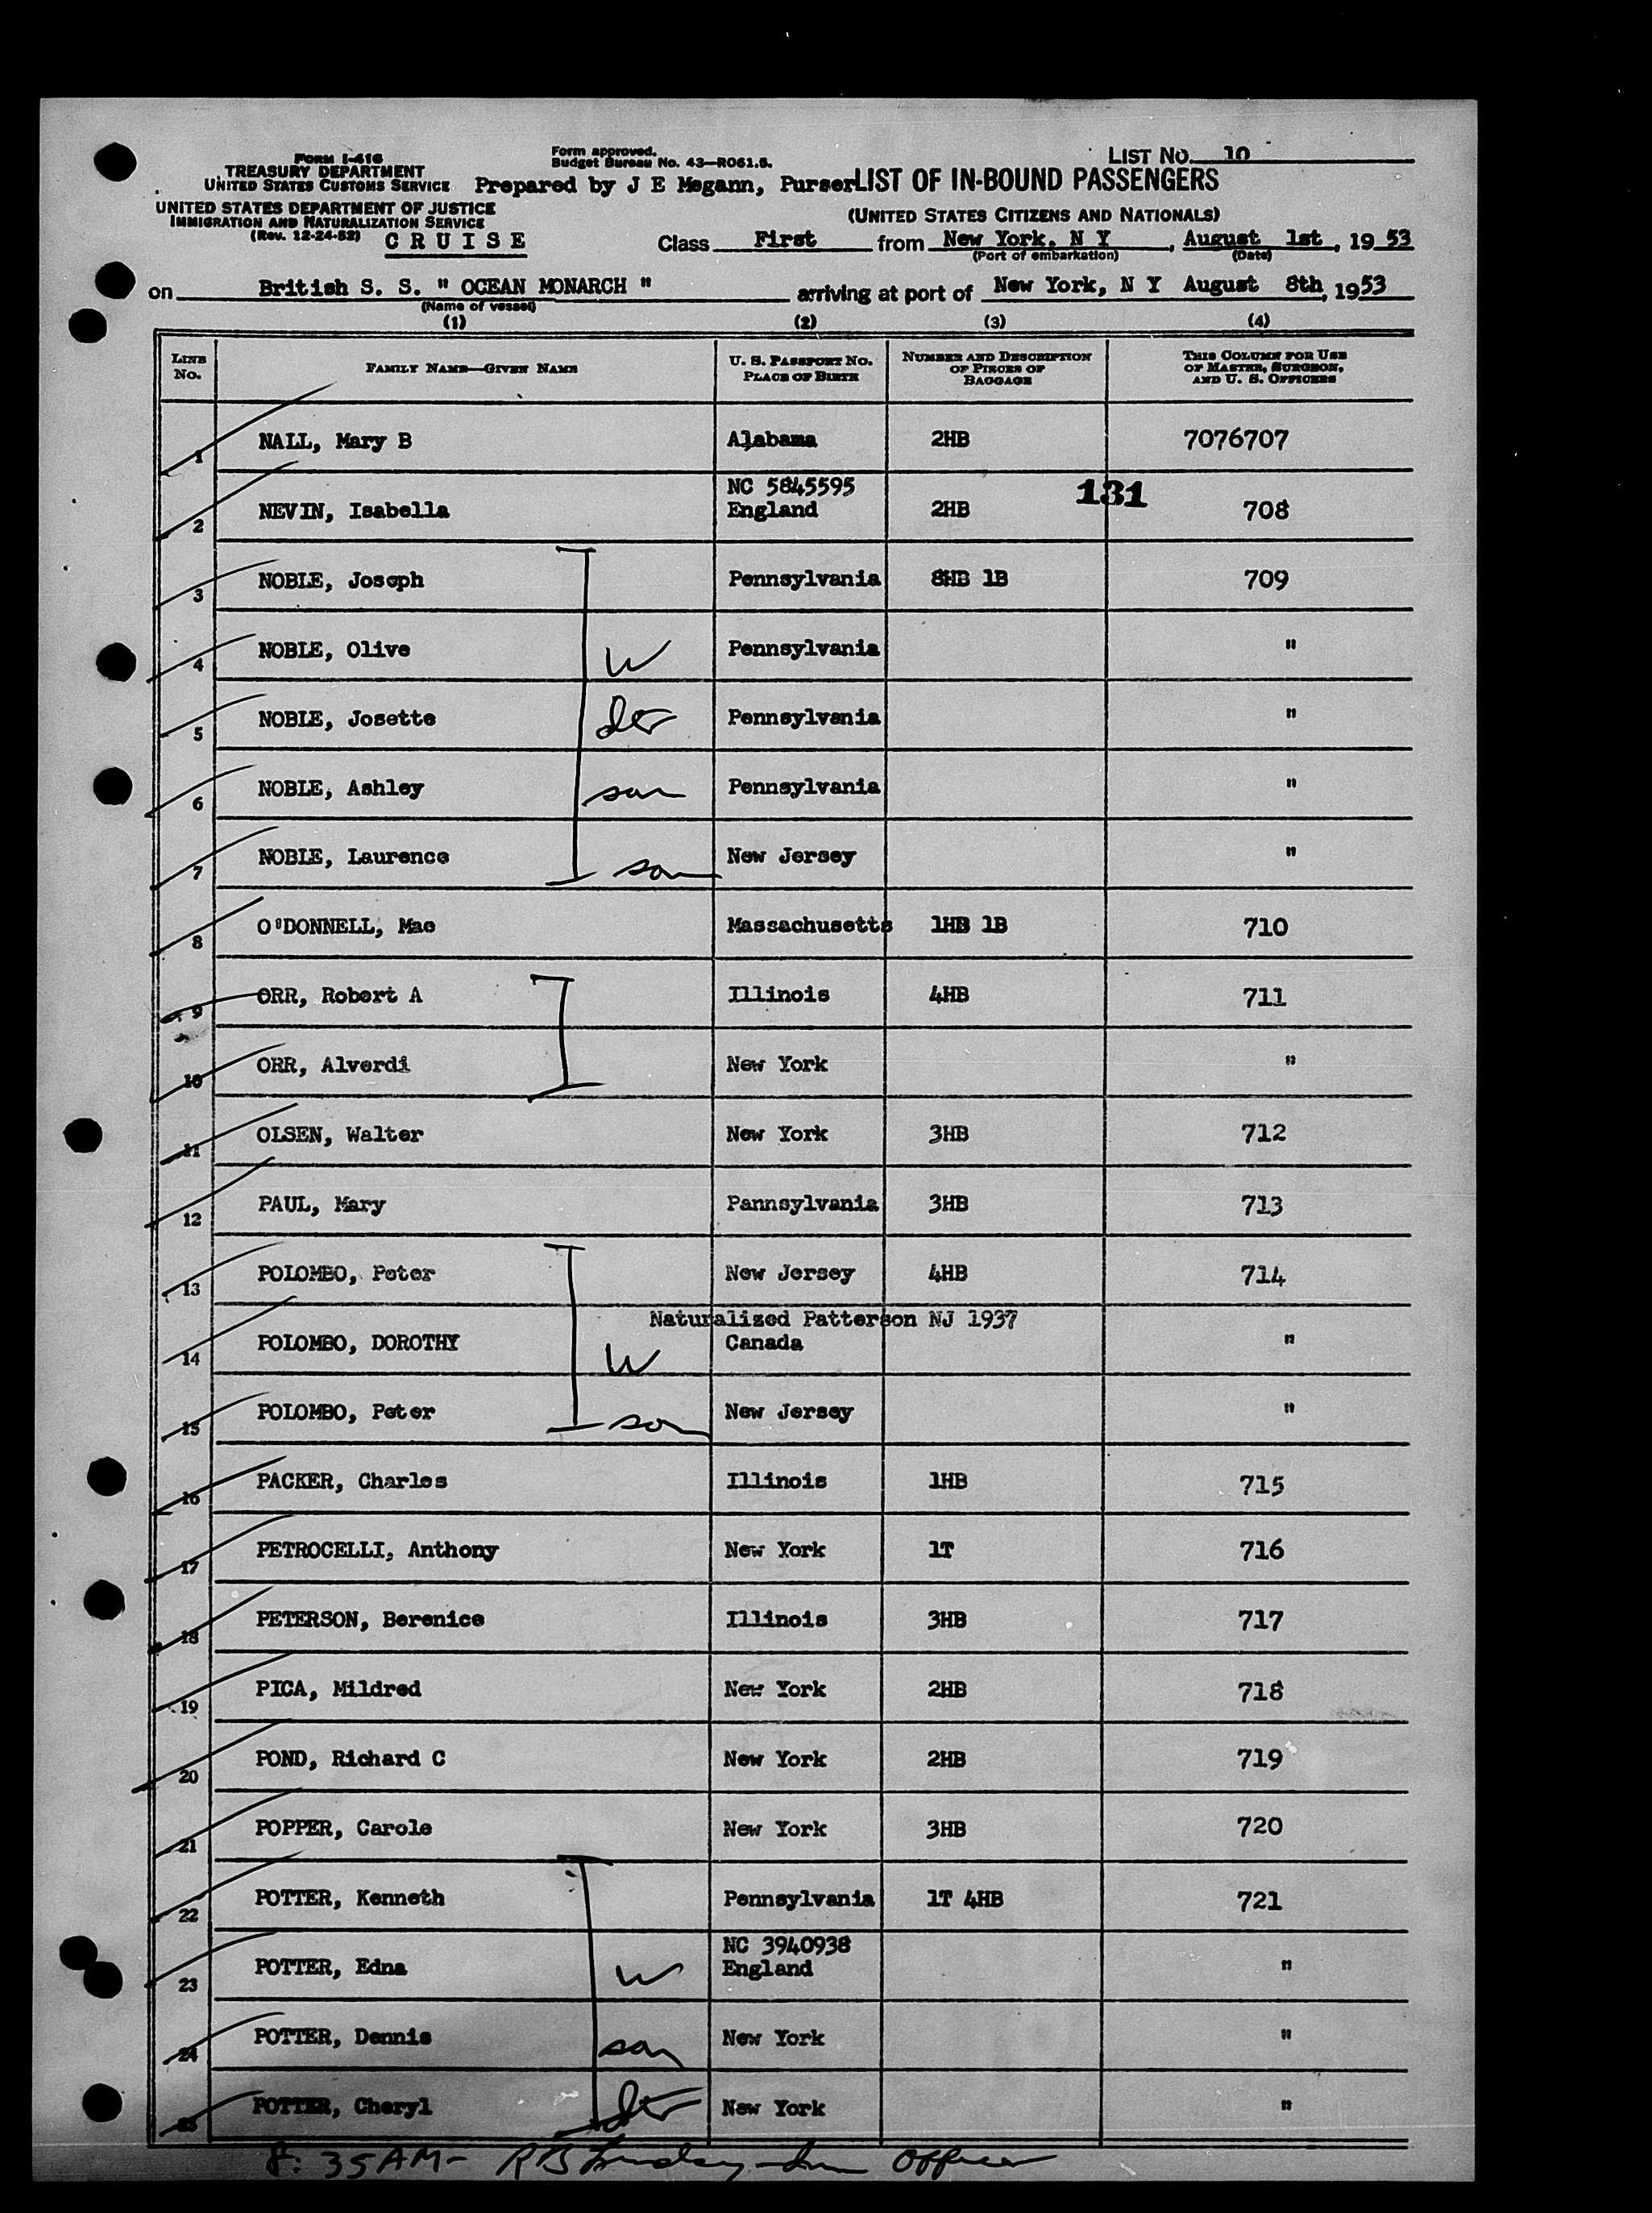 FORM I-416
TREASURY DEPARTMENT
UNITED STATES CUSTOMS SERVICE
UNITED STATES DEPARTMENT OF JUSTICE
IMMIGRATION AND NATURALIZATION SERVICE
(Rev. 12-24-52)
CRUISE
Form approved.
Budget Bureau No. 43—RO61.5.
LIST NO. 10
Prepared by J E Megann, Purser
LIST OF IN-BOUND PASSENGERS
(UNITED STATES CITIZENS AND NATIONALS)
Class First from New York, N Y, August 1st, 1953
(Port of embarkation) (Date)
on British S. S. " OCEAN MONARCH " arriving at port of New York, N Y August 8th, 1953
(Name of vessel)
(1) (2) (3) (4)
LINE No. FAMILY NAME—GIVEN NAME U. S. PASSPORT NO. PLACE OF BIRTH NUMBER AND DESCRIPTION OF PIECES OF BAGGAGE THIS COLUMN FOR USE OF MASTER, SURGEON, AND U. S. OFFICERS
1 NALL, Mary B Alabama 2HB 7076707
NC 5845595 131
2 NEVIN, Isabella England 2HB 708
3 NOBLE, Joseph Pennsylvania 8HB 1B 709
4 NOBLE, Olive W Pennsylvania "
5 NOBLE, Josette dtr Pennsylvania "
6 NOBLE, Ashley son Pennsylvania "
7 NOBLE, Laurence son New Jersey "
8 O'DONNELL, Mae Massachusetts 1HB 1B 710
9 ORR, Robert A Illinois 4HB 711
10 ORR, Alverdi New York "
11 OLSEN, Walter New York 3HB 712
12 PAUL, Mary Pannsylvania 3HB 713
13 POLOMBO, Peter New Jersey 4HB 714
Naturalized Patterson NJ 1937
14 POLOMBO, DOROTHY W Canada "
15 POLOMBO, Peter son New Jersey "
16 PACKER, Charles Illinois 1HB 715
17 PETROCELLI, Anthony New York 1T 716
18 PETERSON, Berenice Illinois 3HB 717
19 PICA, Mildred New York 2HB 718
20 POND, Richard C New York 2HB 719
21 POPPER, Carole New York 3HB 720
22 POTTER, Kenneth Pennsylvania 1T 4HB 721
NC 3940938
23 POTTER, Edna W England "
24 POTTER, Dennis son New York "
25 POTTER, Cheryl dtr New York "
8:35AM- RB Officer